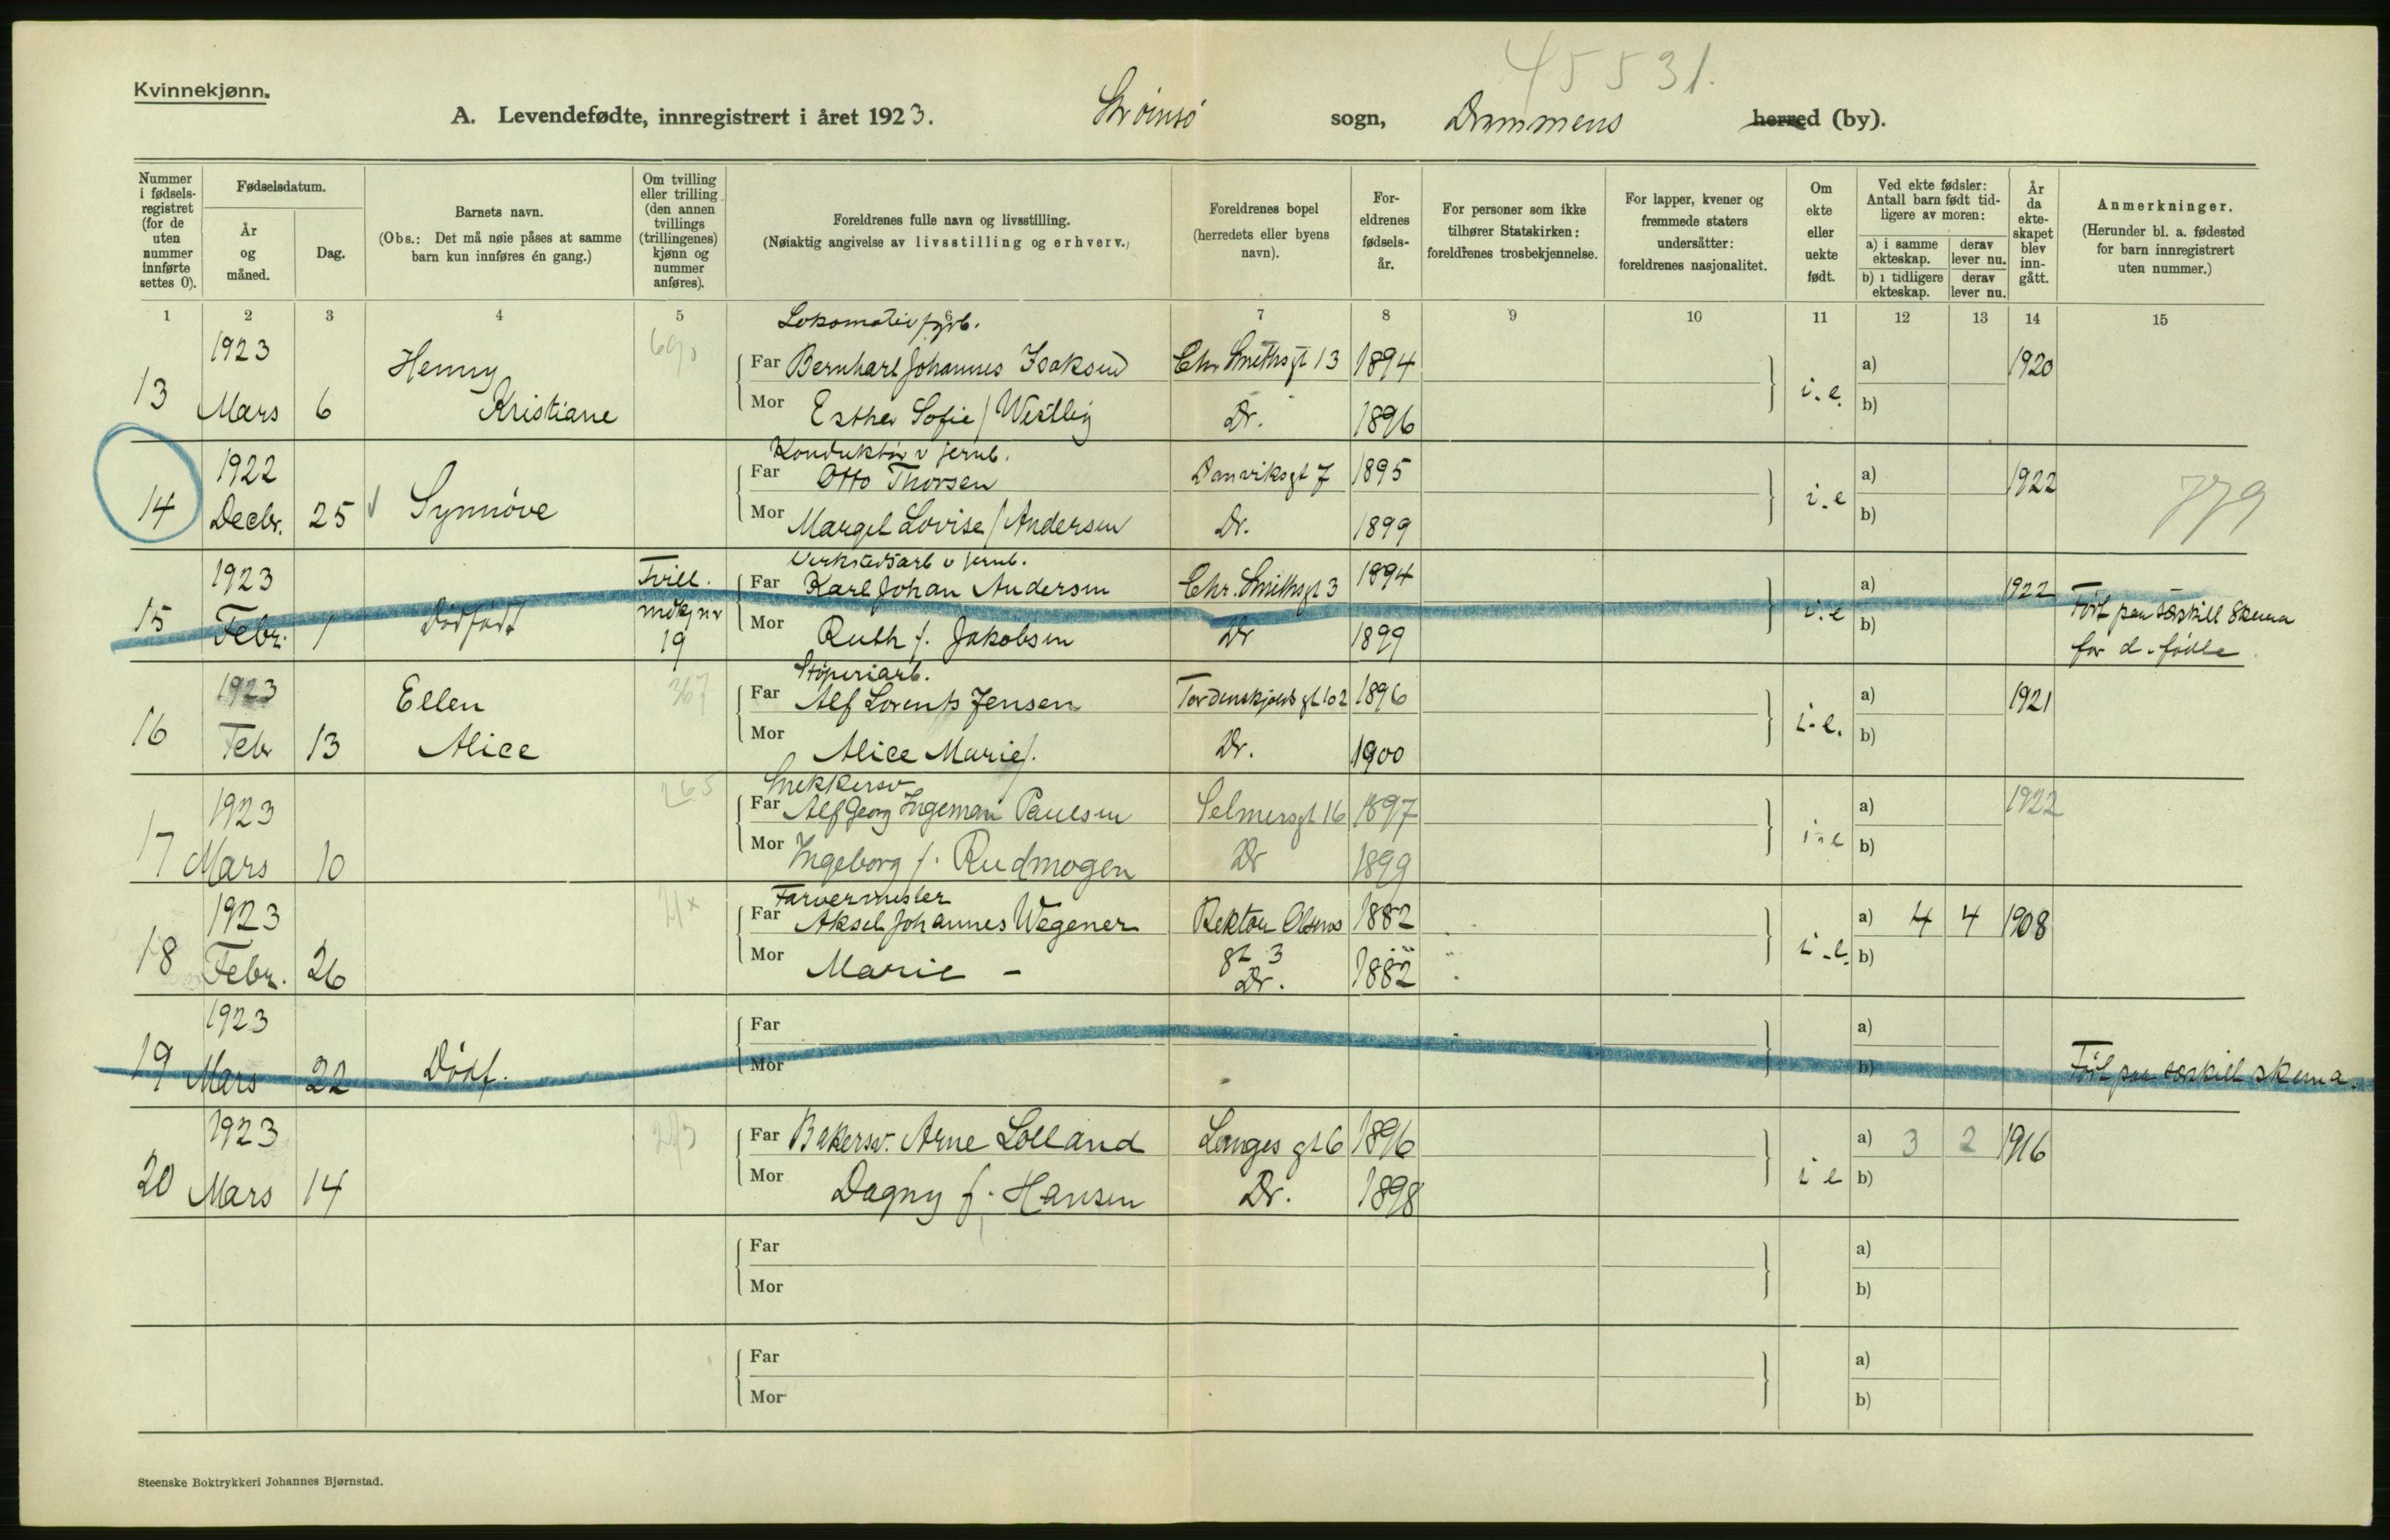 45531.
Kvinnekjønn.
A. Levendefødte, innregistrert i året 1923. Strömsö sogn, Drammens herred (by).
Nummer i fødselsregistret (for de uten nummer innførte settes 0).
Fødselsdatum.
År og måned.
Dag.
Barnets navn.
(Obs.: Det må nøie påses at samme barn kun innføres én gang.)
Om tvilling eller trilling (den annen tvillings (trillingenes) kjønn og nummer anføres).
Foreldrenes fulle navn og livsstilling.
(Nøiaktig angivelse av livsstilling og erhverv.)
Foreldrenes bopel (herredets eller byens navn).
Foreldrenes fødselsår.
For personer som ikke tilhører Statskirken: foreldrenes trosbekjennelse.
For lapper, kvener og fremmede staters undersåtter: foreldrenes nasjonalitet.
Om ekte eller uekte født.
Ved ekte fødsler: Antall barn født tidligere av moren:
a) i samme ekteskap. derav lever nu.
b) i tidligere ekteskap. derav lever nu.
År da ekteskapet blev inngått.
Anmerkninger.
(Herunder bl. a. fødested for barn innregistrert uten nummer.)
1 2 3 4 5 6 7 8 9 10 11 12 13 14 15
Lokomotivfyrb.
1923 Henny Far Bernhart Johannes Isaksen Chr Smithsgt 13 1894 a) 1920
13 Mars 6 Kristiane Mor Esther Sofie / Westbey Dr. 1896 i.e. b)
Konduktör v jernb.
1922 Far Otto Thorsen Danviksgt 7 1895 a) 1922
14 Decbr. 25 Synnöve Mor Margit Lovise / Andersen Dr. 1899 i.e b) 779
Verkstedsarb v jernb.
1923 Tvill. Far Karl Johan Andersen Chr. Smithsgt 3 1894 a) 1922 Fört paa særskilt Skema
15 Febr. 1 Dödfödt mdkj nr 19 Mor Ruth f. Jakobsen Dr 1899 i.e b) for d. födte
Støperiarb.
1923 Ellen 367 Far Alf Lorents Jensen Tordenskjolds gt 102 1896 a) 1921
16 Febr 13 Alice Mor Alice Marie f. Dr. 1900 i.e. b)
Snekkersv
1923 265 Far Alf Georg Ingeman Paulsen Selmersgt 16 1897 a) 1922
17 Mars 10 Mor Ingeborg f. Rudmogen Dr 1899 i.e b)
Farvermester
1923 Far Aksel Johannes Wegener Rektor Olsens 1882 a) 4 4 1908
18 Febr. 26 Mor Marie - gt 3 Dr. 1882 i.e. b)
1923 Far a)
19 Mars 22 Dödf. Mor b) Fört paa særskilt skema.
1923 Far Bakersv. Arne Lolland Langes gt 6 1896 a) 3 2 1916
20 Mars 14 Mor Dagny f. Hansen Dr. 1898 i e b)
Far a)
Mor b)
Far a)
Mor b)
Steenske Boktrykkeri Johannes Bjørnstad.